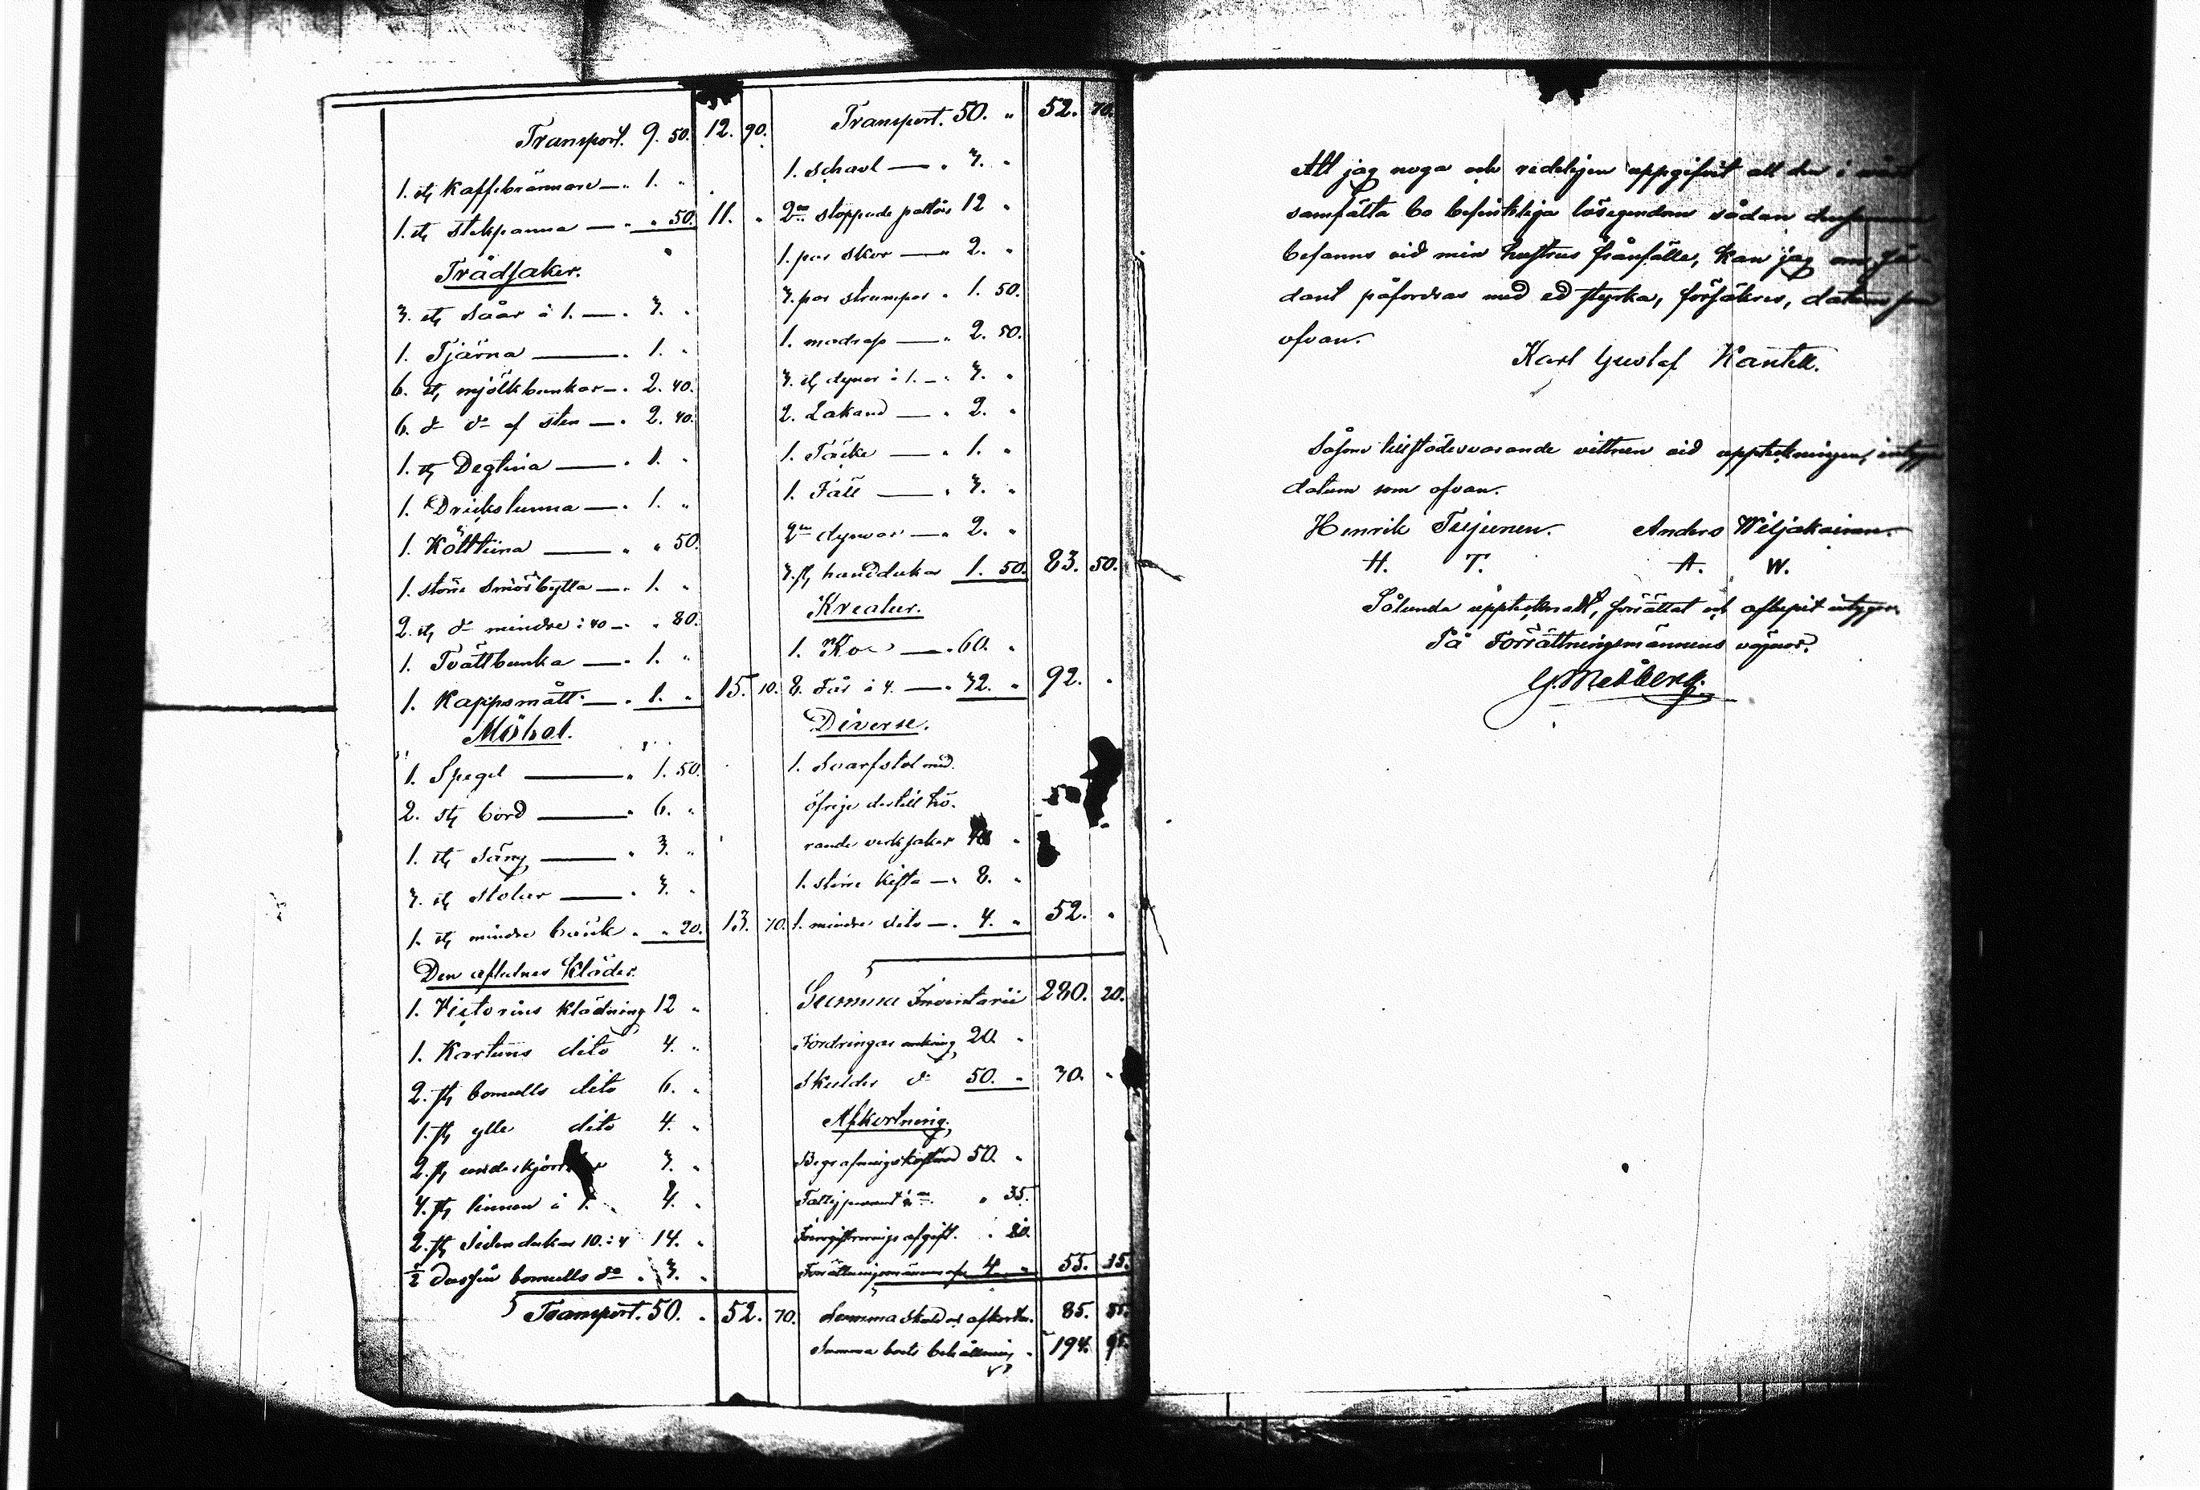 Transport. 9. 50. 12. 90.
1. st. Kaffebrännare — „ 1. „
1. st. stekpanna — „ „ 50. 11. „
Trädsaker.
3. st. Såar à 1. — „ 3. „
1. Tjärna — „ 1. „
6. st. mjölkbunkar — „ 2. 40.
6. d:o d:o af sten — „ 2. 40.
1. st. Degtina — „ 1. „
1. Drickstunna — „ 1. „
1. Kötttina — „ „ 50.
1. större Smörbytta — „ 1. „
2. st. d:o mindre à 40 — „ „ 80.
1. Tvättbunka — „ 1. „
1. Kappsmått — „ 1. „ 15. 10.
Möbel.
1. Spegel — „ 1. 50.
2. st. bord — „ 6. „
1. st. Säng — „ 3. „
3. st. stolar — „ 3. „
1. st. mindre bänk „ „ 20. 13. 70.
Den aflidnes Kläder.
1. Victorins klädning 12 „
1. Kartuns dito 4. „
2. st. bomulls dito 6. „
1. st. ylle dito 4. „
2. st. 3. „
4. st. linnen à 1. 4. „
2. st. Siden dukar 10. à 4 14. „
½ Dussin bomulls d:o „ 3. „
Transport. 50. „ 52. 70.
Transport. 50. „ 52. 70.
1. schavl — „ 3. „
2:ne stoppade 12 „
1. par skor — „ 2. „
3. par strumpor „ 1. 50.
1. madrass — „ 2. 50.
3. st. dynor à 1. — „ 3. „
2. Lakand — „ 2. „
1. Täcke — „ 1. „
1. Fäll — „ 3. „
2:ne dynvar — „ 2. „
3. st. handdukar 1. 50. 83. 50.
Kreatur.
1. Ko — „ 60. „
8. Får à 4. — „ 32. „ 92. „
Diverse.
1. Svarfstol med
öfriga dertill hö-
rande verksaker „
1. större Kista — „ 8. „
1. mindre dito — „ 4. „ 52. „
Summa Inventarii 280. 20.
Fordringar omkring 20. „
Skulder d:o 50. „ 30. „
Afkortning.
Begrafningskostnad 50. „
„ 35.
afgift. „
4. „ 55. 35.
Summa Skuld och afkortn. 85. 35.
Summa boets behållning „ 194.
Att jag noga och redeligen uppgifvit all den i vårt
samfälta bo befintliga lösegendom sådan densamma
befanns vid min hustrus frånfälle, kan jag om så-
dant påfordras med ed styrka, försäkras, datum som
ofvan.
Karl Gustaf Kantell.
Såsom tillstädesvarande vittnen vid uppteckningen, intyga
datum som ofvan.
Henrik Anders Wiljakainen.
H. T. A. W.
Sålunda upptecknadt, förrättat och aflupit intygar.
På Förrättningsmännens vägnar.